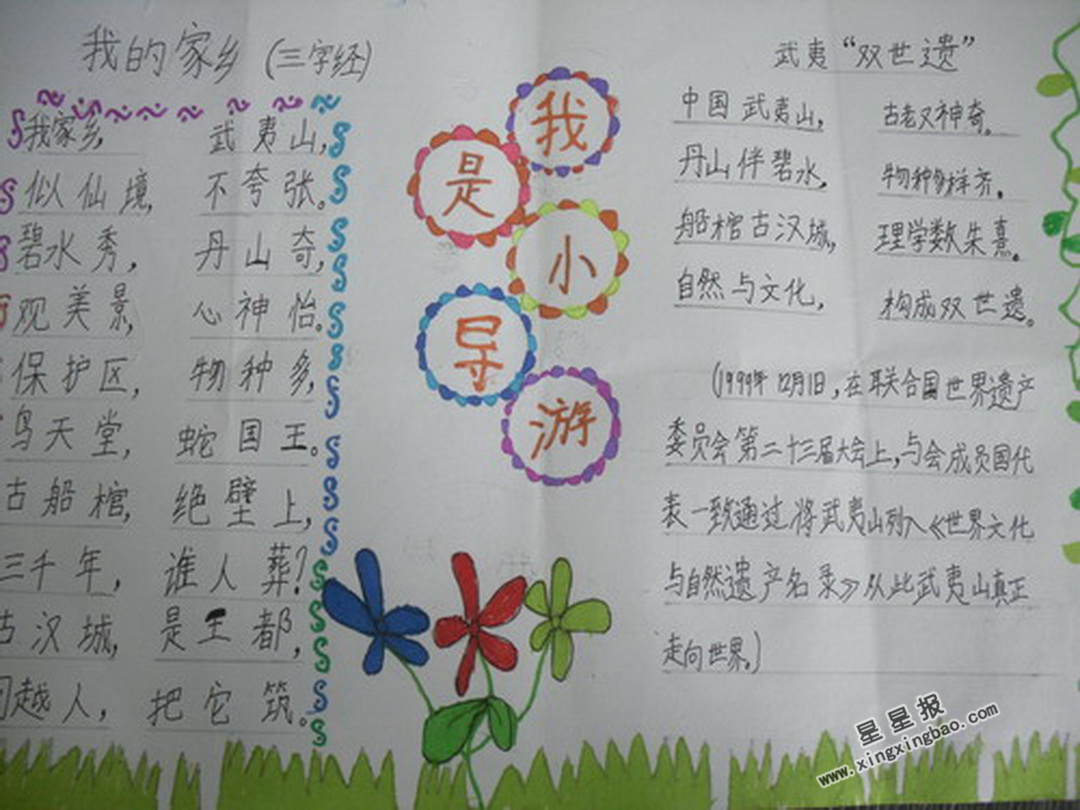 我的家乡(三字经)
我家乡, 武夷山,
似仙境, 不夸张。
碧水秀, 丹山奇,
观美景, 心神怡。
保护区, 物种多,
鸟天堂, 蛇国王。
古船棺, 绝壁上,
三千年, 谁人葬?
古汉城, 是王都,
越人, 把它筑。
我是小导游
武夷“双世遗”
中国武夷山, 古老又神奇。
丹山伴碧水, 物种多样齐。
船棺古汉城, 理学数朱熹。
自然与文化, 构成双世遗。
(1999年12月1日,在联合国世界遗产
委员会第二十三届大会上,与会成员国代
表一致通过,将武夷山列入《世界文化
与自然遗产名录》从此武夷山真正
走向世界。)
星星报
www.xingxingbao.com